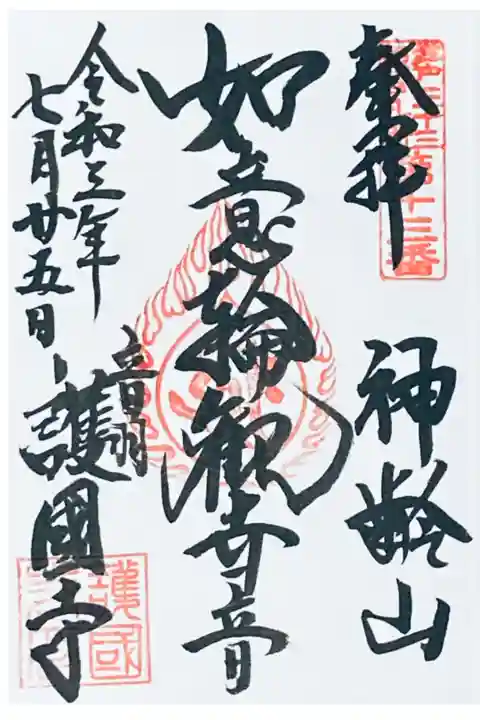 奉拝
神齢山
如意輪観世音
音羽
護國寺
令和三年
七月廿五日
護國